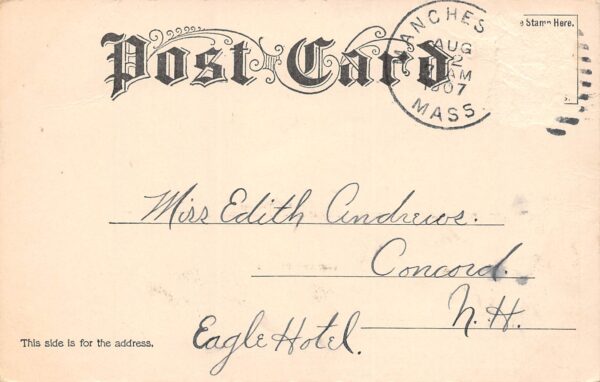 Post Card
MANCHES
AUG
2
AM
1907
MASS.
e Stamp Here.
Miss Edith Andrews.
Concord.
N.H.
Eagle Hotel.
This side is for the address.